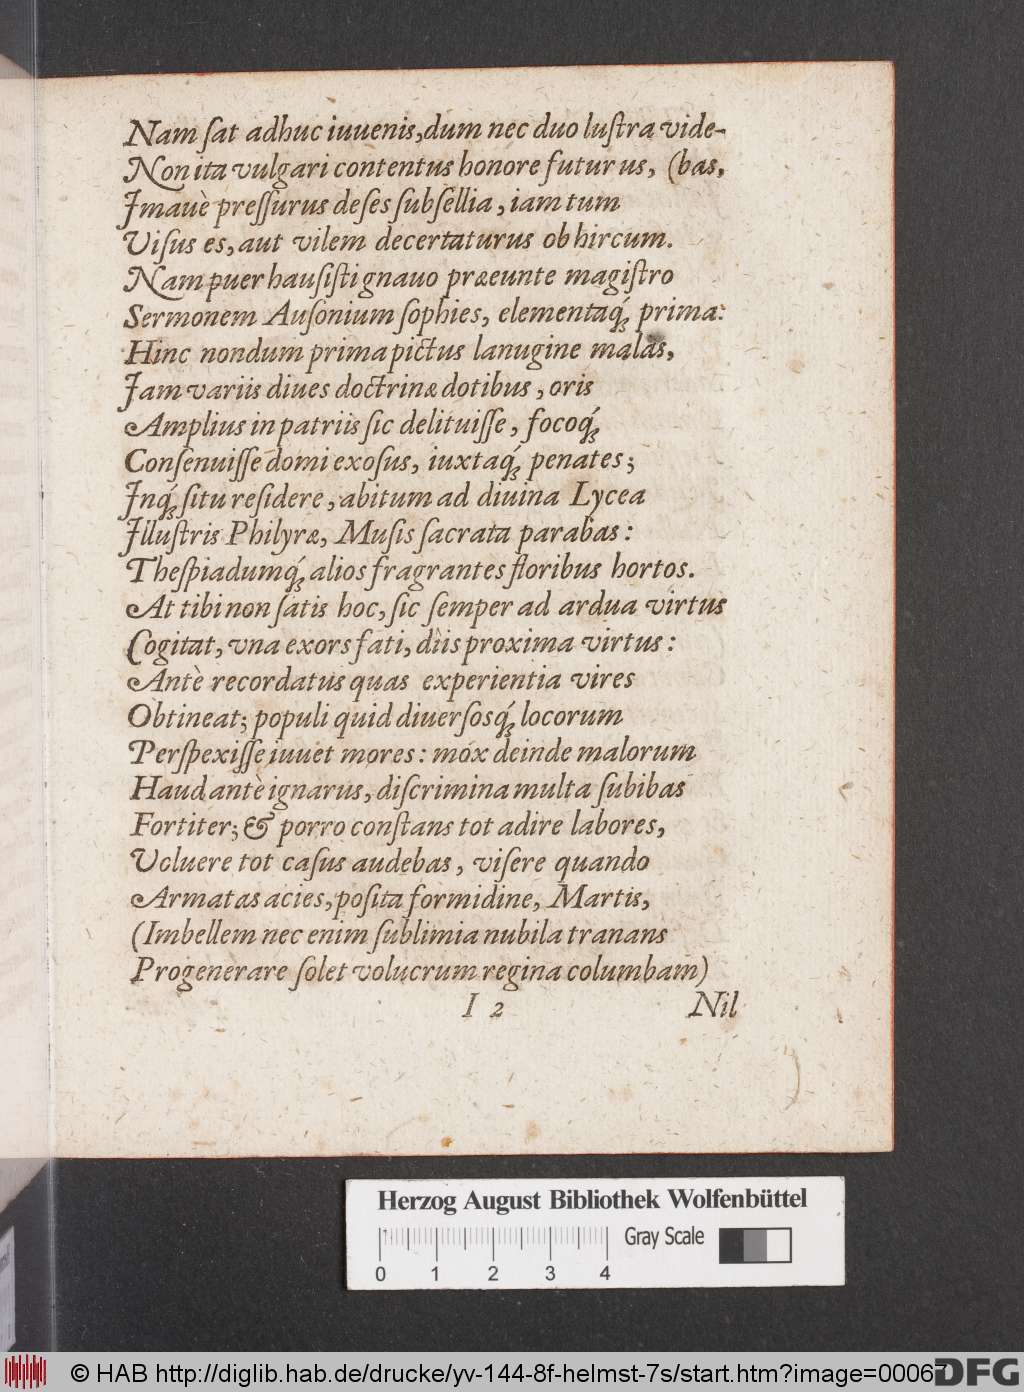 Nam ſat adhuc iuuenis,dum nec duo luſtra vide-
Non ita vulgari contentus honore futurus, (bas,
Imauè preſſurus deſes ſubſellia, iam tum
Viſus es, aut vilem decertaturus ob hircum.
Nam puer hauſiſti gnauo præeunte magiſtro
Sermonem Auſonium ſophies, elementaq́; prima:
Hinc nondum prima pictus lanugine malas,
Jam variis diues doctrinæ dotibus, oris
Amplius in patriis ſic delituiſſe, focoq́;
Conſenuiſſe domi exoſus, iuxtaq́; penates;
Inq́; ſitu reſidere, abitum ad diuina Lycea
Illuſtris Philyræ, Muſis ſacrata parabas:
Theſpiadumq́; alios fragrantes floribus hortos.
At tibi non ſatis hoc, ſic ſemper ad ardua virtus
Cogitat, vna exors fati, diis proxima virtus:
Antè recordatus quas experientia vires
Obtineat; populi quid diuerſosq́; locorum
Perſpexiſſe iuuet mores: mox deinde malorum
Haud antè ignarus, diſcrimina multa ſubibas
Fortiter; & porro conſtans tot adire labores,
Voluere tot caſus audebas, viſere quando
Armatas acies, poſita formidine, Martis,
(Imbellem nec enim ſublimia nubila tranans
Progenerare ſolet volucrum regina columbam)
I 2 Nil
Herzog August Bibliothek Wolfenbüttel
Gray Scale
0 1 2 3 4
© HAB http://diglib.hab.de/drucke/yv-144-8f-helmst-7s/start.htm?image=00067
DFG